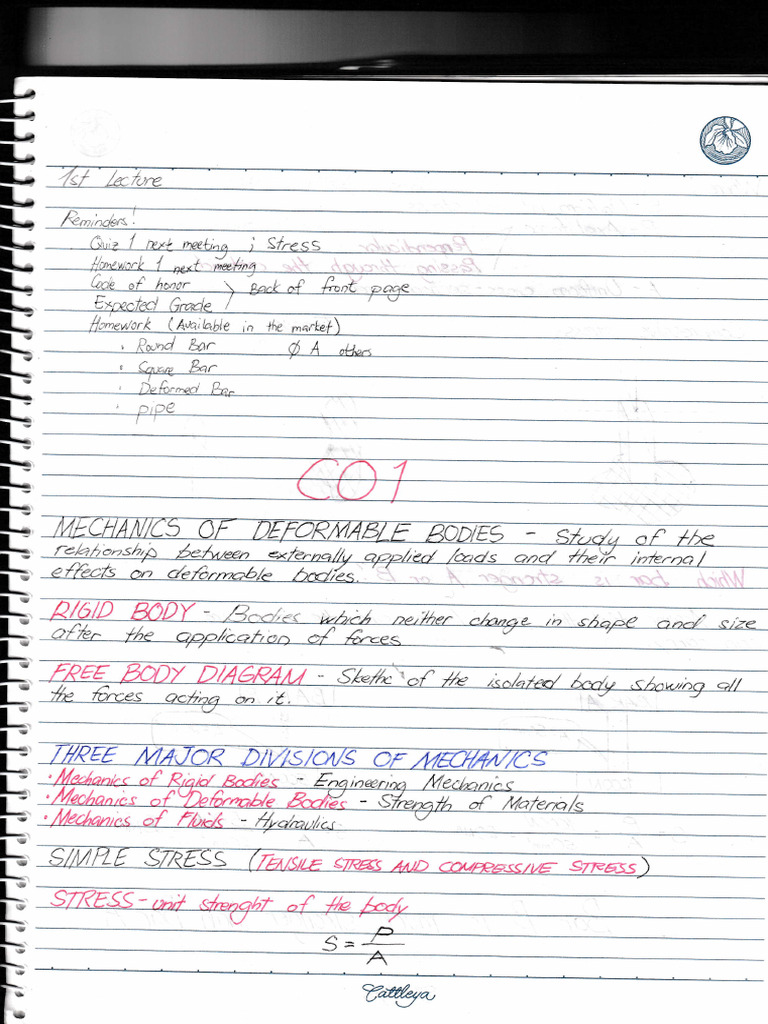 1st Lecture
Reminders!
Quiz 1 next meeting ; Stress
Homework 1 next meeting
Code of honor > Back of front page
Expected Grade
Homework (Available in the market)
• Round Bar Ø A others
• Square Bar
• Deformed Bar
• pipe
CO1
MECHANICS OF DEFORMABLE BODIES - Study of the
relationship between externally applied loads and their internal
effects on deformable bodies.
RIGID BODY - Bodies which neither change in shape and size
after the application of forces
FREE BODY DIAGRAM - Skethc of the isolated body showing all
the forces acting on it.
THREE MAJOR DIVISIONS OF MECHANICS
• Mechanics of Rigid Bodies - Engineering Mechanics
• Mechanics of Deformable Bodies - Strength of Materials
• Mechanics of Fluids - Hydraulics
SIMPLE STRESS (TENSILE STRESS AND COMPRESSIVE STRESS)
STRESS - unit strenght of the body
S = P/A
Cattleya